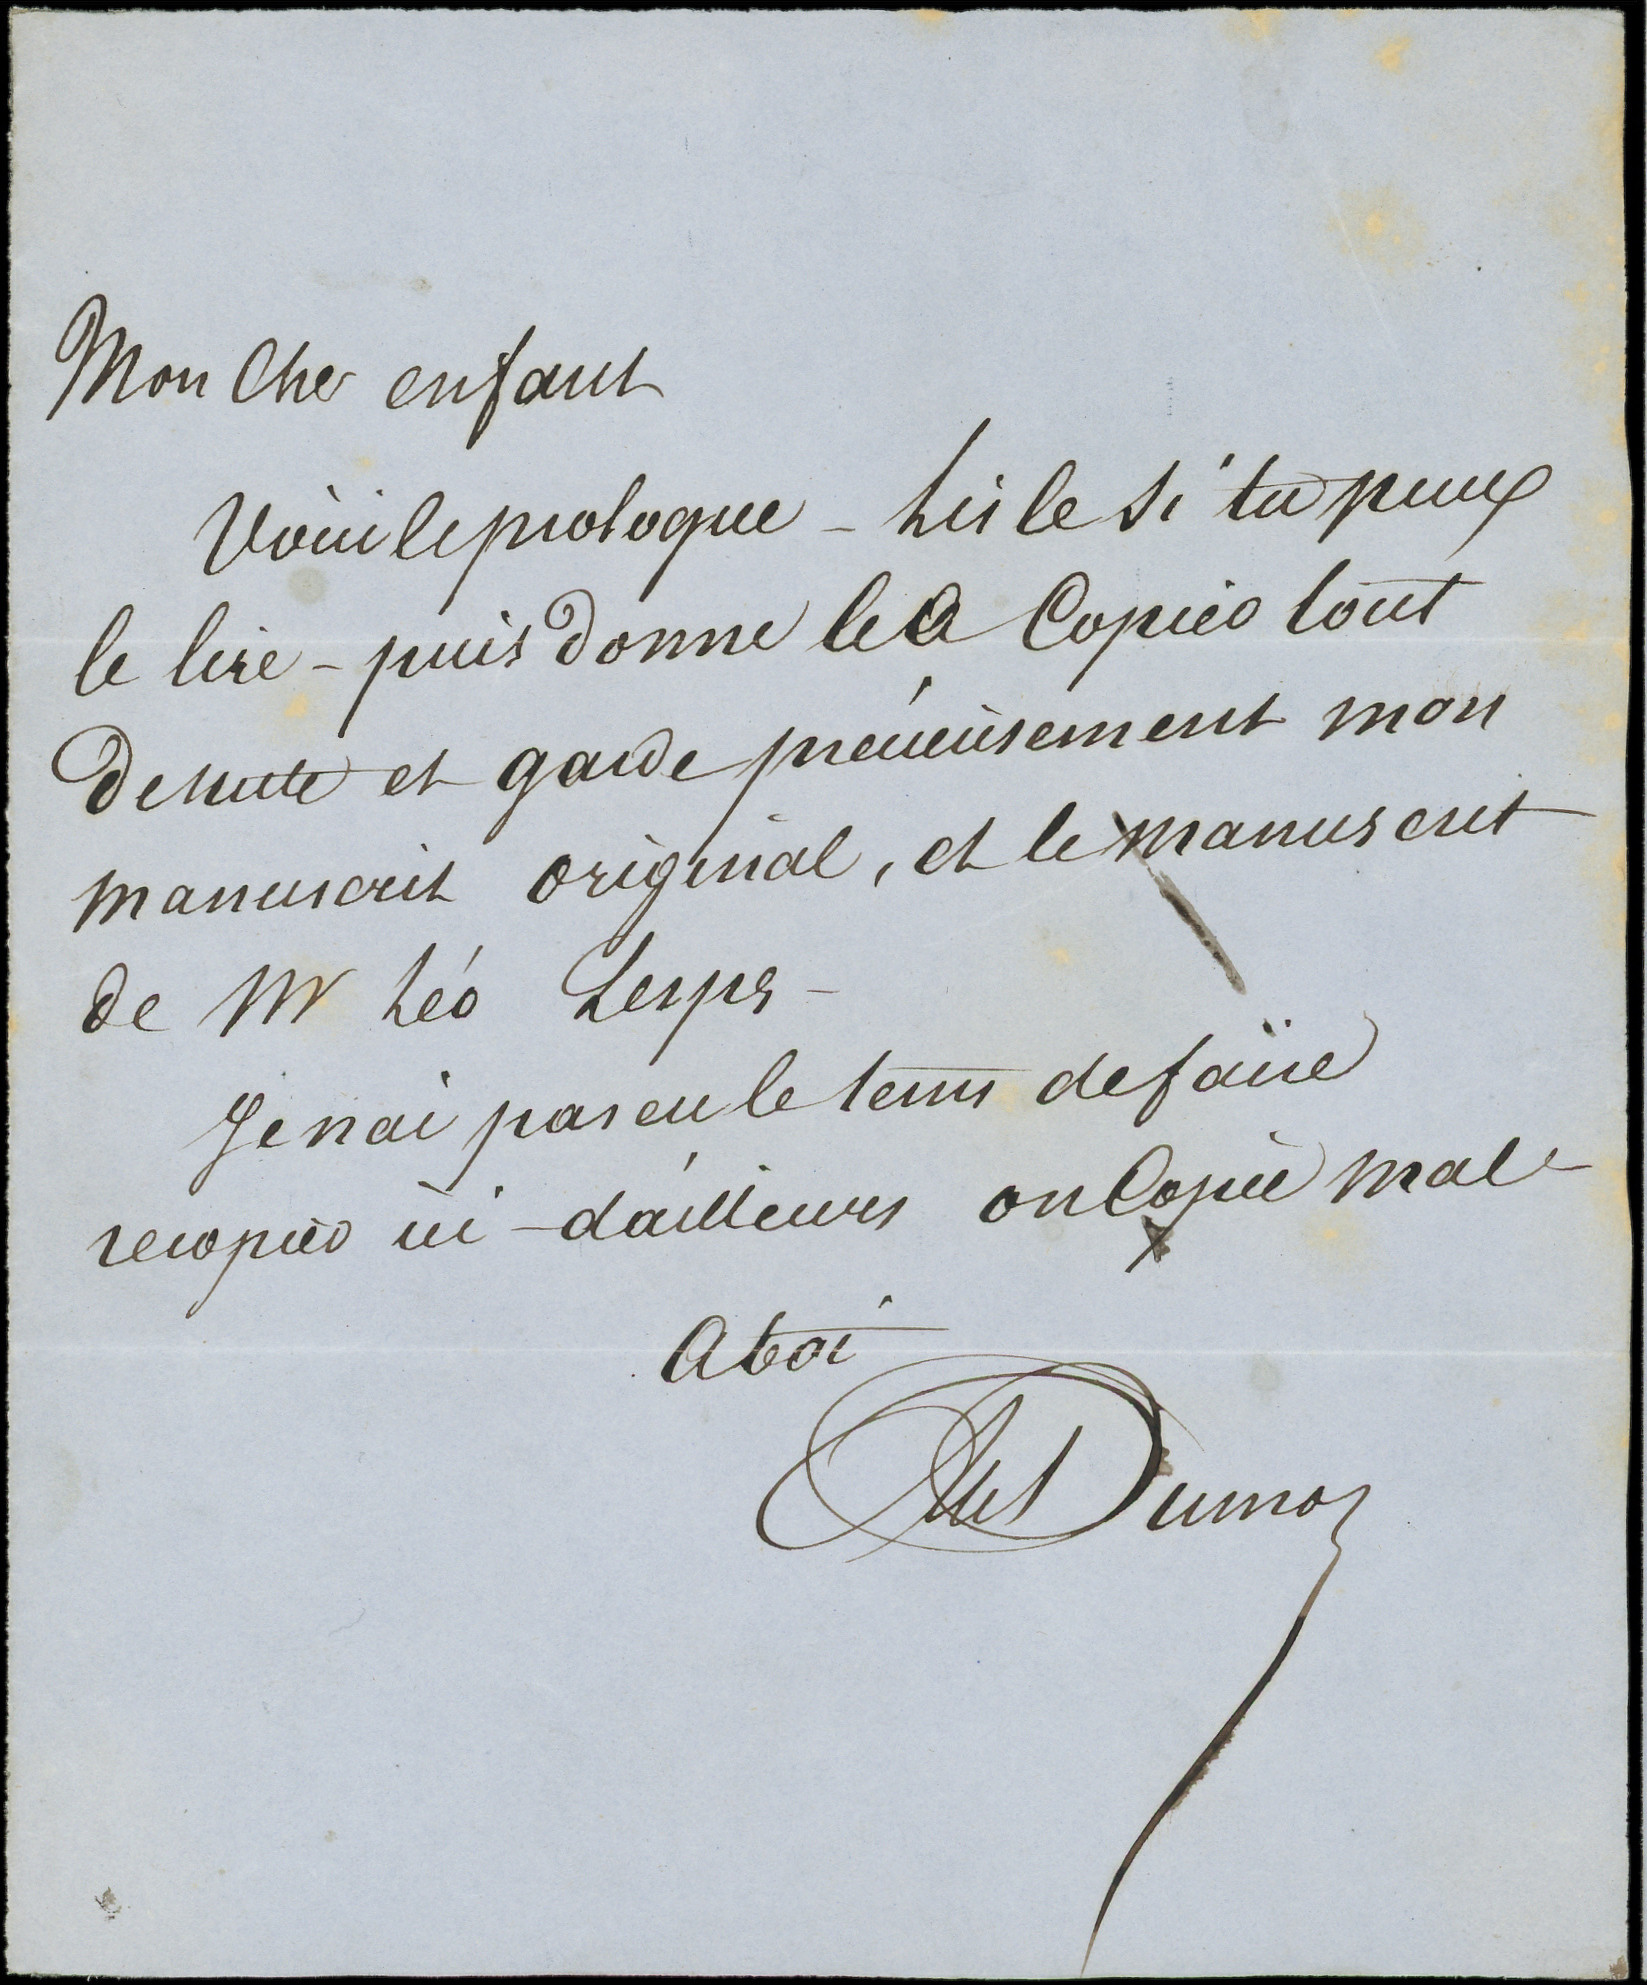 Mon Cher enfant
Voici le prologue – Lis le si tu peux
le lire – puis donne le a Copier tout
de suite et garde précieusement mon
manuscrit original, et le manuscrit
de Mr Léo Lesps –
Je nai pas eu le tems de faire
recopier ici – dailleurs on Copie mal –
A toi
Alex Dumas